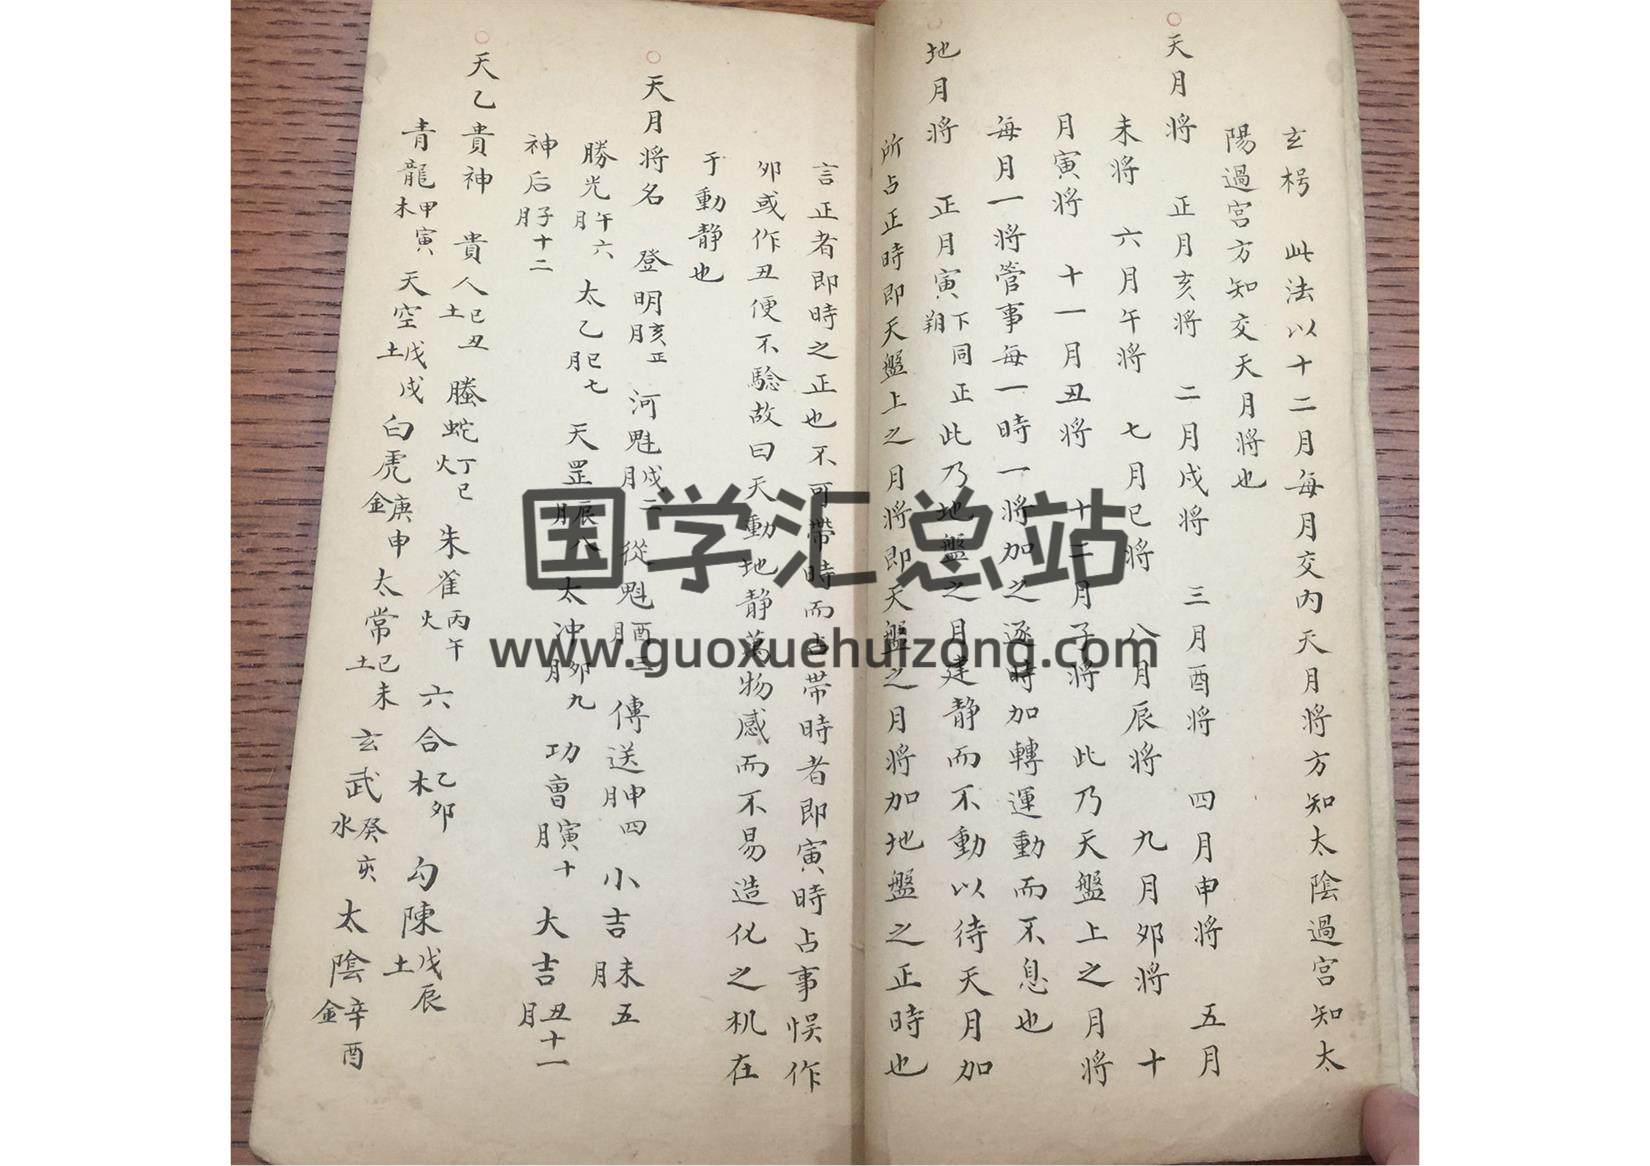 玄枵　此法以十二月每月交內天月將方知太陰過宮知太
陽過宮方知交天月將也
○天月將　正月亥將　二月戌將　三月酉將　四月申將　五月
未將　六月午將　七月巳將　八月辰將　九月卯將　十
月寅將　十一月丑將　十二月子將　此乃天盤上之月將
每月一將管事每一時一將加之逐時加轉運動而不息也
○地月將　正月寅下同正朔此乃地盤之月建靜而不動以待天月加
所占正時即天盤上之月將即天盤之月將加地盤之正時也
言正者即時之正也不可帶時而占帶時者即寅時占事悞作
卯或作丑便不驗故曰天動地靜萬物感而不易造化之机在
于動靜也
○天月將名　登明亥正月　河魁戌二月　從魁酉三月　傳送申四月　小吉未五月
勝光午六月　太乙巳七月　天罡辰八月　太冲卯九月　功曹寅十月　大吉丑十一月
神后子十二月
○天乙貴神　貴人己丑土　螣蛇丁巳火　朱雀丙午火　六合乙卯木　勾陳戊辰土
青龍甲寅木　天空戊戌土　白虎庚申金　太常己未土　玄武癸亥水　太陰辛酉金
国学汇总站
www.guoxuehuizong.com